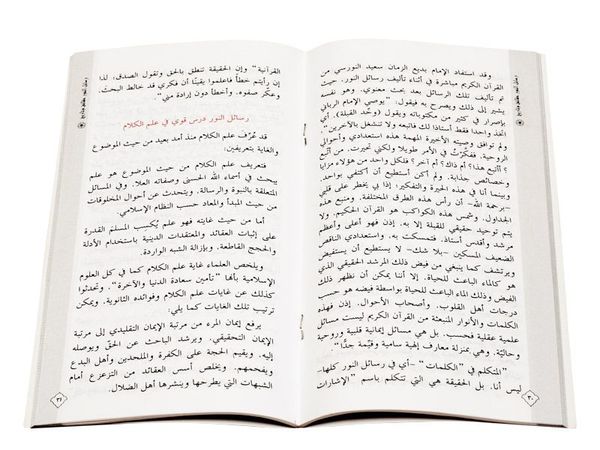 وقد استفاد الإمام بديع الزمان سعيد النورسي من
القرآن الكريم مباشرة في أثناء تأليف رسائل النور. وقد
تم تأليف تلك الرسائل بعد بحث معنوي. وهو نفسه
يشير إلى ذلك ويصرح به فيقول: "يوصي الإمام الرباني
بإصرار في كثير من مكتوباته ويقول (وحّد القبلة). أي
اتّخذ واحدا فقط أستاذا لك فاتبعه ولا تنشغل بالآخرين".
ولم توافق وصيته الأخيرة المهمة هذه استعدادي وأحوالي
الروحية. ففكّرت في الأمر طويلا ولكني تحيرت. من أتّبع
؟ أأتبع هذا؟ أم ذاك؟ أم آخر؟ فلكل واحد من هؤلاء مزايا
وخصائص جذابة. ولم أكن أستطيع أن أكتفي بواحد.
وبينما أنا في هذه الحيرة والتفكير؛ إذا بي يخطر على قلبي
-برحمة الله- أن رأس هذه الطرق المختلفة. ومنبع هذه
الجداول. وشمس هذه الكواكب هو القرآن الحكيم. ولا
يتم توحيد حقيقي للقبلة إلا به. إذن فهو أعلى وأعظم
مرشد وأقدس أستاذ. فتمسكت به. واستعدادي الناقص
الضعيف المسكين -بلا شك- لا يستطيع أن يستفيض
ويرتشف كما ينبغي من فيض ذلك المرشد الحقيقي الذي
هو كالماء الباعث للحياة. إلا أننا يمكن أن نظهر ذلك
الفيض وذلك الماء الباعث للحياة بواسطة فيضه هو حسب
درجات أهل القلوب. وأصحاب الأحوال. إذن فهذه
الكلمات والأنوار المنبعثة من القرآن الكريم ليست مسائل
علمية عقلية فحسب. بل هي مسائل إيمانية قلبية وروحية
وحالية. وهي بمنزلة معارف إلهية سامية وقيّمة جدًّا".
هي المتكلم في "الكلمات" -أي في رسائل النور كلها-
ليس أنا. بل الحقيقة هي التي تتكلم باسم "الإشارات
٣٠
القرآنية" وإن الحقيقة تنطق بالحق وتقول الصدق، لذا
إن رأيتم خطأ فاعلموا يقينًا أن فكري قد خالط البحث.
وعكّر صفوه. وأخطأ دون إرادة مني".
رسائل النور درس قوي في علم الكلام
قد عُرّف علم الكلام منذ أمد بعيد من حيث الموضوع
والغاية بتعريفين:
فتعريف علم الكلام من حيث الموضوع هو علم
يبحث في أسماء الله الحسنى وصفاته العلا. وفي المسائل
المتعلقة بالنبوة والرسالة. ويتحدث عن أحوال المخلوقات
من حيث المبدأ والمعاد حسب النظام الإسلامي.
أما من حيث غايته فهو علم يُكسب المسلم القدرة
على إثبات العقائد والمعتقدات الدينية باستخدام الأدلة
والحجج القاطعة. وبإزالة الشبه الواردة.
ويلخص العلماء غاية علم الكلام كما في كل العلوم
الإسلامية بأنها "تأمين سعادة الدنيا والآخرة". وتحدثوا
كذلك عن غايات علم الكلام وفوائده الثانوية. ويمكن
ترتيب تلك الغايات كما يلي:
يرفع إيمان المرء من مرتبة الإيمان التقليدي إلى مرتبة
الإيمان التحقيقي. ويرشد الباحث عن الحق ويوصله
إليه. ويقيم الحجة على الكفرة والملحدين وأهل البدع
ويفحمهم. ويخلص أسس العقائد من التزعزع أمام
الشبهات التي يطرحها وينشرها أهل الضلال.
٣١